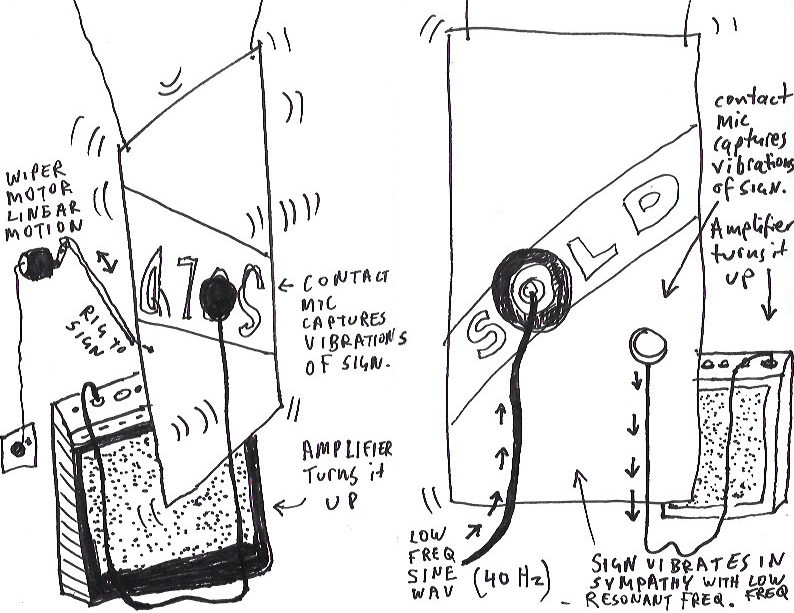 WIPER
MOTOR
LINEAR
MOTION
RIG TO
SIGN
← CONTACT
MIC
CAPTURES
VIBRATIONS
OF SIGN.
AMPLIFIER
TURNS it
UP
SOLD
contact
Mic
captures
vibrations
of sign.
Amplifier
turns it
UP
LOW
FREQ
SINE
WAV (40 Hz)
SIGN VIBRATES IN
SYMPATHY WITH LOW FREQ
- RESONANT FREQ.